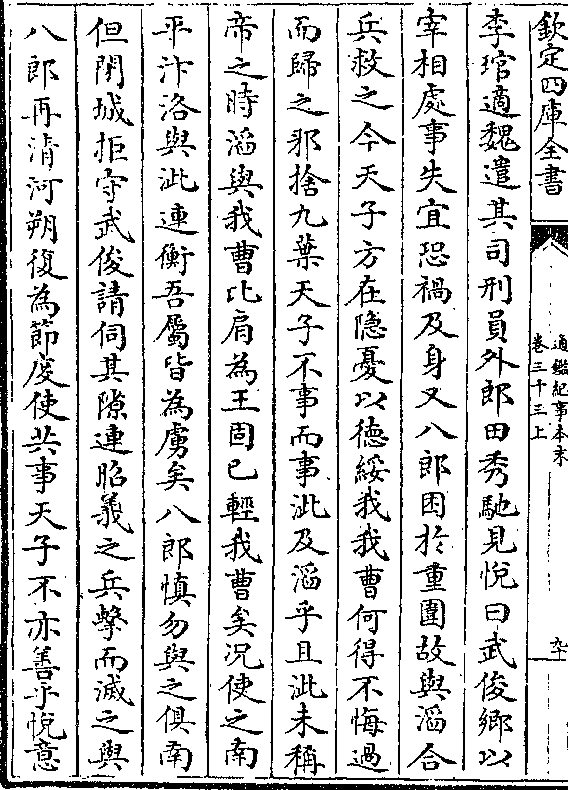 欽定四庫全書
通鑑紀事本末
卷三十三上
卆
李琯適魏遣其司刑員外郎田秀馳見悅曰武俊鄉以
宰相處事失宜恐禍及身又八郎困於重圍故與滔合
兵救之今天子方在隐憂以徳綏我我曹何得不悔過
而歸之邪捨九葉天子不事而事泚及滔乎且泚未稱
帝之時滔與我曹比肩為王固已輕我曹矣况使之南
平汴洛與泚連衡吾屬皆為虜矣八郎慎勿與之俱南
但閉城拒守武俊請伺其隙連昭義之兵擊而滅之與
八郎再清河朔復為節度使共事天子不亦善乎悅意